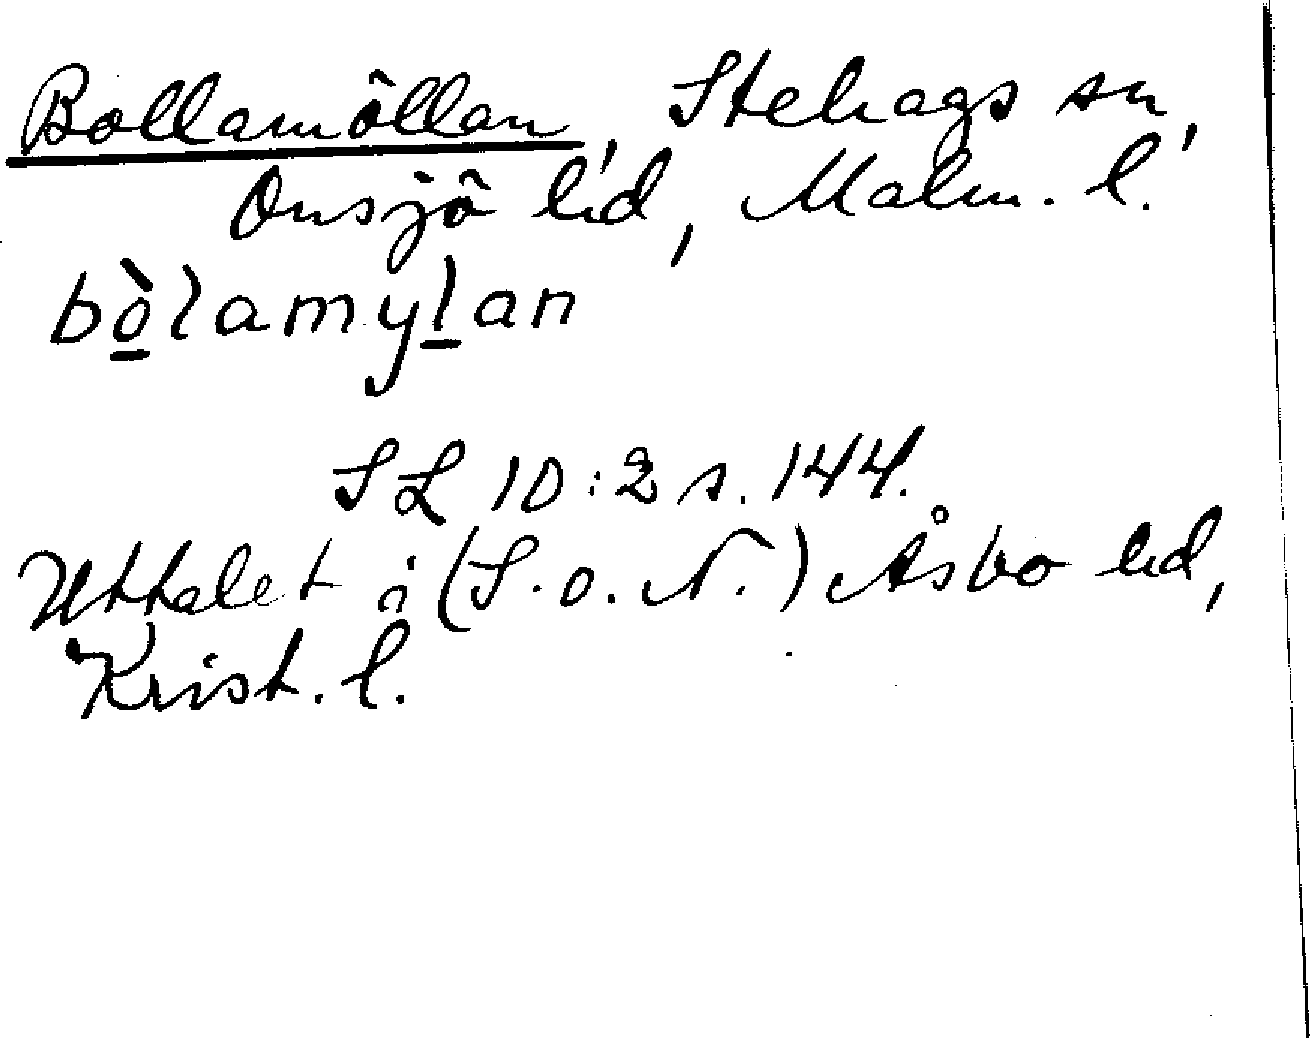 Bollamöllan, Stehags sn,
Onsjö hd, Malm. l.
bò̲lamyl̲an
SL 10:2 s. 144.
Uttalet i (S. o. N.) Åsbo hd,
Krist. l.